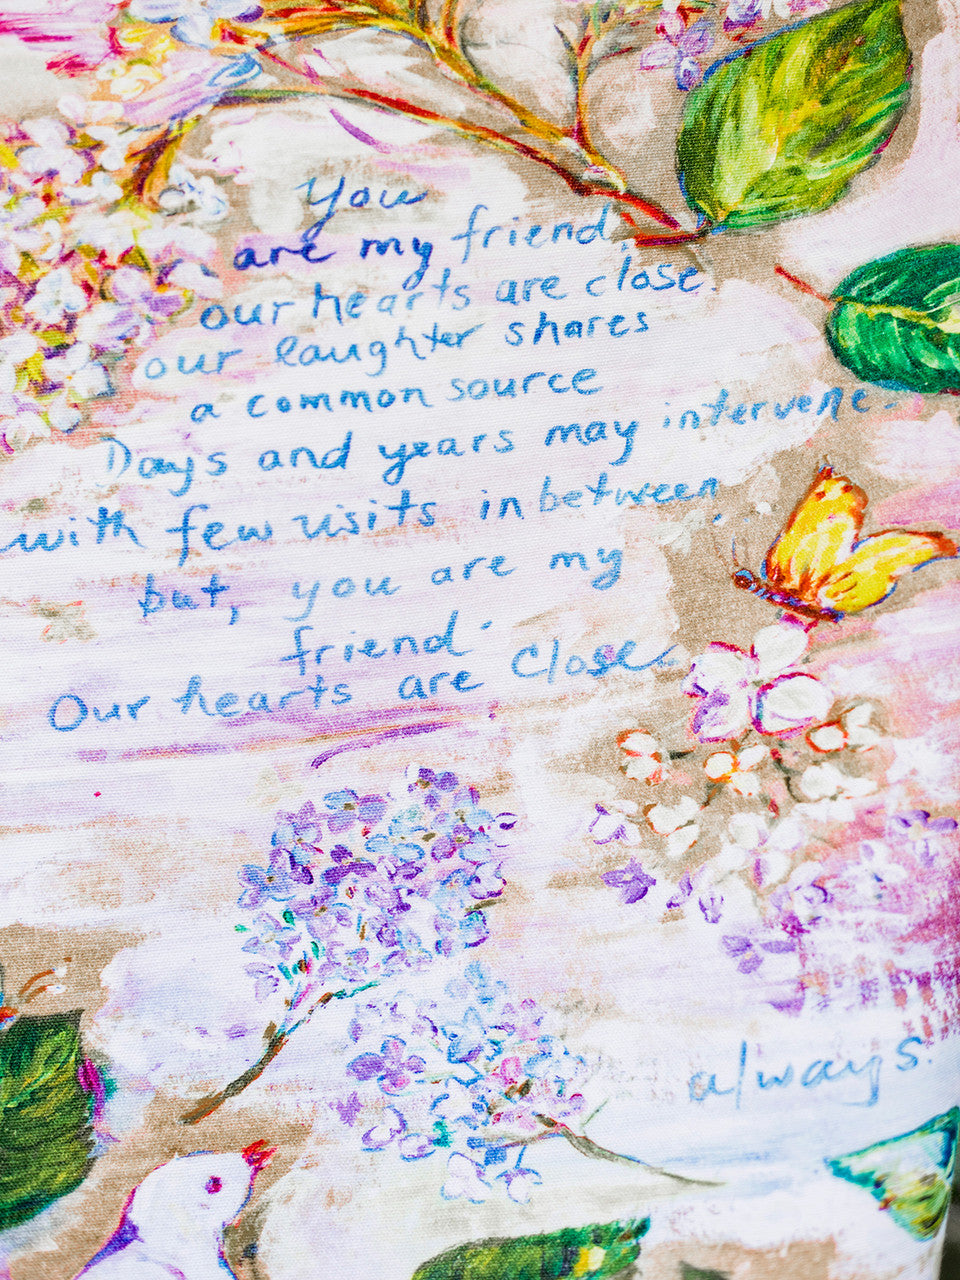 You
are my friend,
our hearts are close.
our laughter shares
a common source
Days and years may intervene-
with few visits in between,
but, you are my
friend.
Our hearts are close.
always.